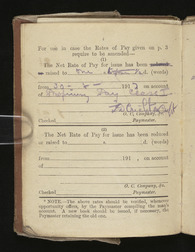 For use in case the Rates of Pay given on p. 3
require to be amended—
(1)
The Net Rate of Pay for issue has been
or raised to one d. (words)
from 20 - 8 - 191 on account
of
O. C. Company, &c.
Checked Paymaster.
(2)
The Net Rate of Pay for issue has been reduced
or raised to s. d. (words)
from 191 , on account
of
O. C. Company, &c.
Checked Paymaster.
* NOTE.—The above rates should be verified, whenever
opportunity offers, by the Paymaster compiling the man's
account. A new book should be issued, if necessary, the
Paymaster retaining the old one.